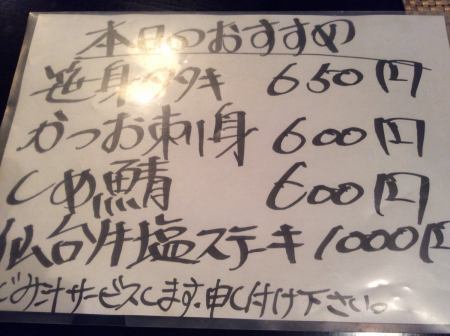 本日のおすすめ
笹身タタキ 650円
かつお刺身 600円
しめ鯖 600円
仙台牛塩ステーキ 1000円
じみ汁サービスします。申し付け下さい。